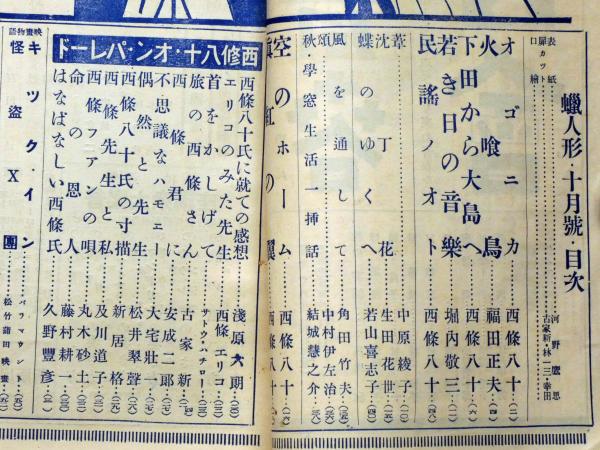 蠟人形・十月號・目次
表紙
扉カット
口繪
河野鷹思
古家新
林三
オゴニカ 西條八十
火喰鳥 福田正夫
下田から大島へ 西條八十
若き日の音樂 堀內敬三
民謠ノオト 西條八十
葦 中原綾子
沈丁花 生田花世
蝶のゆくへ 若山喜志子
風を通して 角田竹夫
頌 中村伊左治
秋・學窓生活一挿話 結城慧之介
空のホーム 西條八十
西修八十・オン・パレード
西條八十氏に就ての感想 淺原六朗
エリコのみた先生 西條エリコ
首をかしげて サトウ・ハチロー
旅の西條さん 古家新
西條君に 安成二郎
不思議なハモニー 大宅壯一
偶然と先生 松井翠聲
西條八十氏の寸描 新居格
西條先生と私 及川道子
西條フアンの唄 丸木砂土
命の恩人 藤村耕一
はなばなしい西條氏 久野豐彥
映畫物語
キック・イン パラマウント
怪盜X團 松竹蒲田映畫